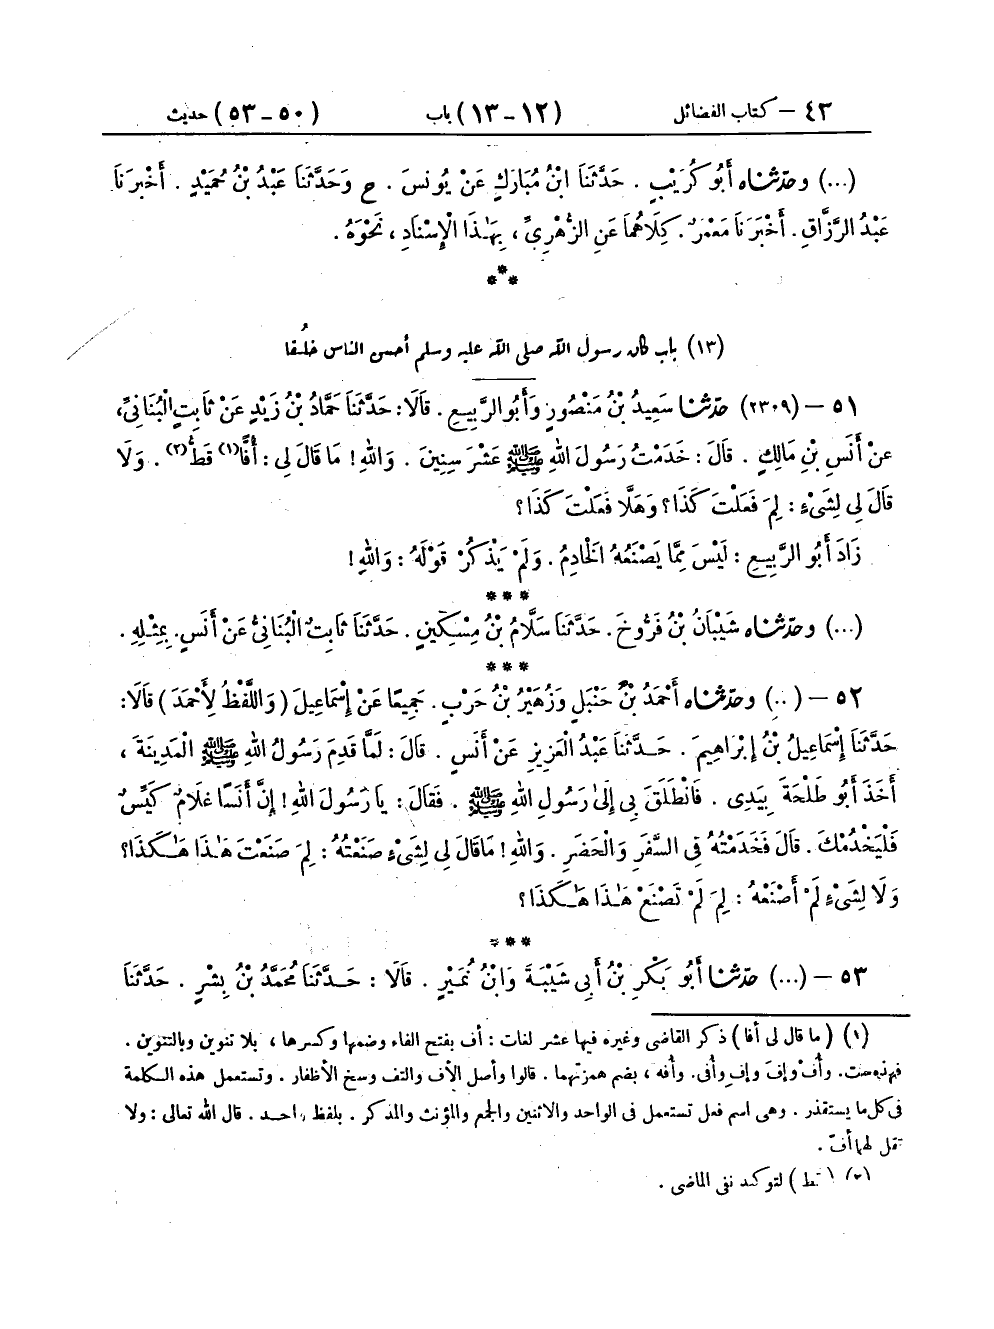 ٤٣ – كتاب الفضائل (١٢ – ١٣) باب (٥٠ – ٥٣) حديث
(...) وحدّثناه أَبُو كُرَيْبٍ . حَدَّثَنَا ابْنُ مُبَارَكٍ عَنْ يُونُسَ . ح وَحَدَّثَنَا عَبْدُ بْنُ حُمَيْدٍ . أَخْبَرَنَا
عَبْدُ الرَّزَّاقِ . أَخْبَرَنَا مَعْمَرٌ . كِلَاهُمَا عَنِ الزُّهْرِيِّ ، بِهَـٰذَا الْإِسْنَادِ ، نَحْوَهُ .
***
(١٣) باب كان رسول الله صلى الله عليه وسلم أحسن الناس خلُقا
٥١ – (٢٣٠٩) حدّثنا سَعِيدُ بْنُ مَنْصُورٍ وَأَبُو الرَّبِيعِ . قَالَا : حَدَّثَنَا حَمَّادُ بْنُ زَيْدٍ عَنْ ثَابِتٍ الْبُنَانِيِّ ،
عَنْ أَنَسِ بْنِ مَالِكٍ . قَالَ : خَدَمْتُ رَسُولَ اللهِ ﷺ عَشْرَ سِنِينَ . وَاللهِ ! مَا قَالَ لِي : أُفًّا(١) قَطُّ(٢) . وَلَا
قَالَ لِي لِشَيْءٍ : لِمَ فَعَلْتَ كَذَا ؟ وَهَلَّا فَعَلْتَ كَذَا ؟
زَادَ أَبُو الرَّبِيعِ : لَيْسَ مِمَّا يَصْنَعُهُ الْخَادِمُ . وَلَمْ يَذْكُرْ قَوْلَهُ : وَاللهِ !
***
(...) وحدّثناه شَيْبَانُ بْنُ فَرُّوخَ . حَدَّثَنَا سَلَّامُ بْنُ مِسْكِينٍ . حَدَّثَنَا ثَابِتٌ الْبُنَانِيُّ عَنْ أَنَسٍ . بِمِثْلِهِ .
***
٥٢ – (...) وحدّثناه أَحْمَدُ بْنُ حَنْبَلٍ وَزُهَيْرُ بْنُ حَرْبٍ . جَمِيعًا عَنْ إِسْمَاعِيلَ ( وَاللَّفْظُ لِأَحْمَدَ ) قَالَا :
حَدَّثَنَا إِسْمَاعِيلُ بْنُ إِبْرَاهِيمَ . حَـدَّثَنَا عَبْدُ الْعَزِيزِ عَنْ أَنَسٍ . قَالَ : لَمَّا قَدِمَ رَسُولُ اللهِ ﷺ الْمَدِينَةَ ،
أَخَذَ أَبُو طَلْحَةَ بِيَدِي . فَانْطَلَقَ بِي إِلَىٰ رَسُولِ اللهِ ﷺ . فَقَالَ : يَا رَسُولَ اللهِ ! إِنَّ أَنَسًا غُلَامٌ كَيِّسٌ
فَلْيَخْدُمْكَ . قَالَ فَخَدَمْتُهُ فِي السَّفَرِ وَالْحَضَرِ . وَاللهِ ! مَا قَالَ لِي لِشَيْءٍ صَنَعْتُهُ : لِمَ صَنَعْتَ هَـٰذَا هَـٰكَذَا ؟
وَلَا لِشَيْءٍ لَمْ أَصْنَعْهُ : لِمَ لَمْ تَصْنَعْ هَـٰذَا هَـٰكَذَا ؟
***
٥٣ – (...) حدّثنا أَبُو بَكْرِ بْنُ أَبِي شَيْبَةَ وَابْنُ نُمَيْرٍ . قَالَا : حَـدَّثَنَا مُحَمَّدُ بْنُ بِشْرٍ . حَدَّثَنَا
(١) ( ما قال لى أفا ) ذكر القاضى وغيره فيها عشر لغات : أف بفتح الفاء وضمها وكسرها ، بلا تنوين وبالتنوين .
فهذه ست. وأُفْ وإِفَ وإِفٍ وأُفى. وأُفه ، بضم همزتهما . قالوا وأصل الأف والتف وسخ الأظفار . وتستعمل هذه الـكلمة
فى كل ما يستقذر . وهى اسم فعل تستعمل فى الواحد والاثنين والجمع والمؤنث والمذكر . بلفظ واحـد . قال الله تعالى : ولا
تقل لهما أفّ .
(٢) ( قط ) لتوكيد نفى الماضى .